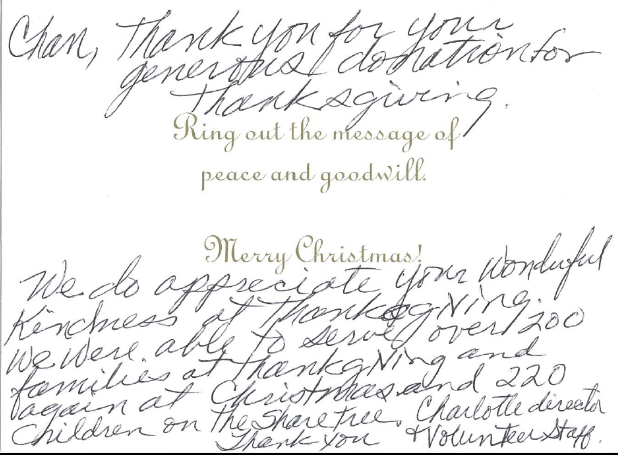 Chan, Thank you for your
generous donation for
Thanksgiving.
Ring out the message of
peace and goodwill.
Merry Christmas!
We do appreciate your wonderful
Kindness at Thanksgiving.
We were able to serve over 200
families at Thanksgiving and
again at Christmas and 220
children on the Share Tree. Charlotte director
Thank you & Volunteer Staff.